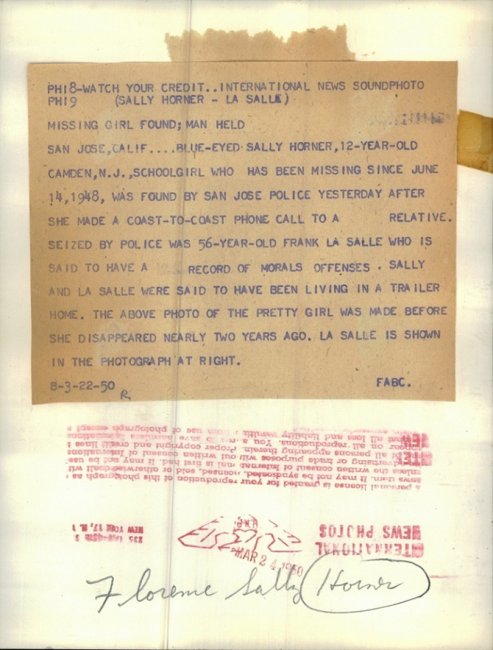 PH18-WATCH YOUR CREDIT..INTERNATIONAL NEWS SOUNDPHOTO
PH19 (SALLY HORNER - LA SALLE)
MISSING GIRL FOUND; MAN HELD
SAN JOSE, CALIF....BLUE-EYED SALLY HORNER, 12-YEAR-OLD
CAMDEN, N.J., SCHOOLGIRL WHO HAS BEEN MISSING SINCE JUNE
14, 1948, WAS FOUND BY SAN JOSE POLICE YESTERDAY AFTER
SHE MADE A COAST-TO-COAST PHONE CALL TO A RELATIVE.
SEIZED BY POLICE WAS 56-YEAR-OLD FRANK LA SALLE WHO IS
SAID TO HAVE A RECORD OF MORALS OFFENSES. SALLY
AND LA SALLE WERE SAID TO HAVE BEEN LIVING IN A TRAILER
HOME. THE ABOVE PHOTO OF THE PRETTY GIRL WAS MADE BEFORE
SHE DISAPPEARED NEARLY TWO YEARS AGO. LA SALLE IS SHOWN
IN THE PHOTOGRAPH AT RIGHT.
8-3-22-50 R FABC.
INTERNATIONAL
NEWS PHOTOS
NEW YORK 17, N.Y.
MAR 24 1950
Florence Sally Horner